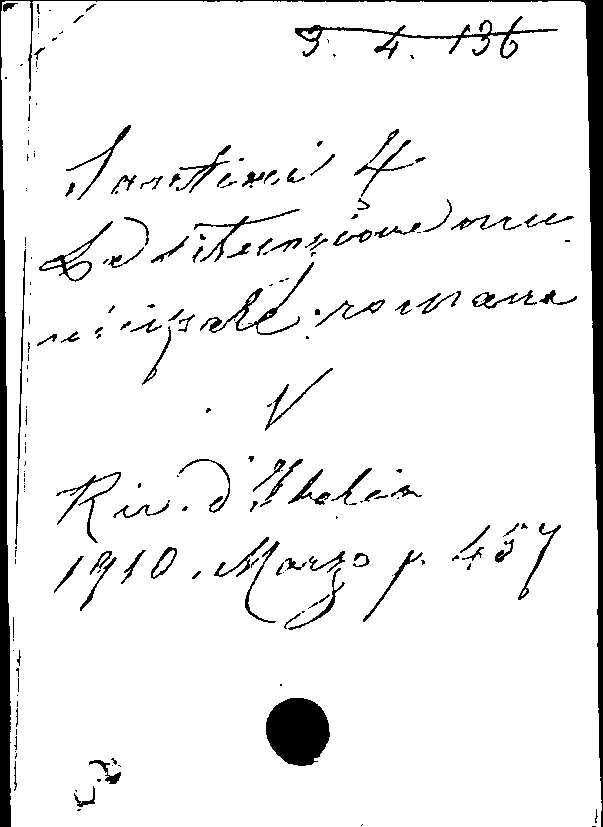 3. 4. 136
Santini
La situazione mu
nicipale romana
V
Riv. d'Italia
1910. Marzo p. 457